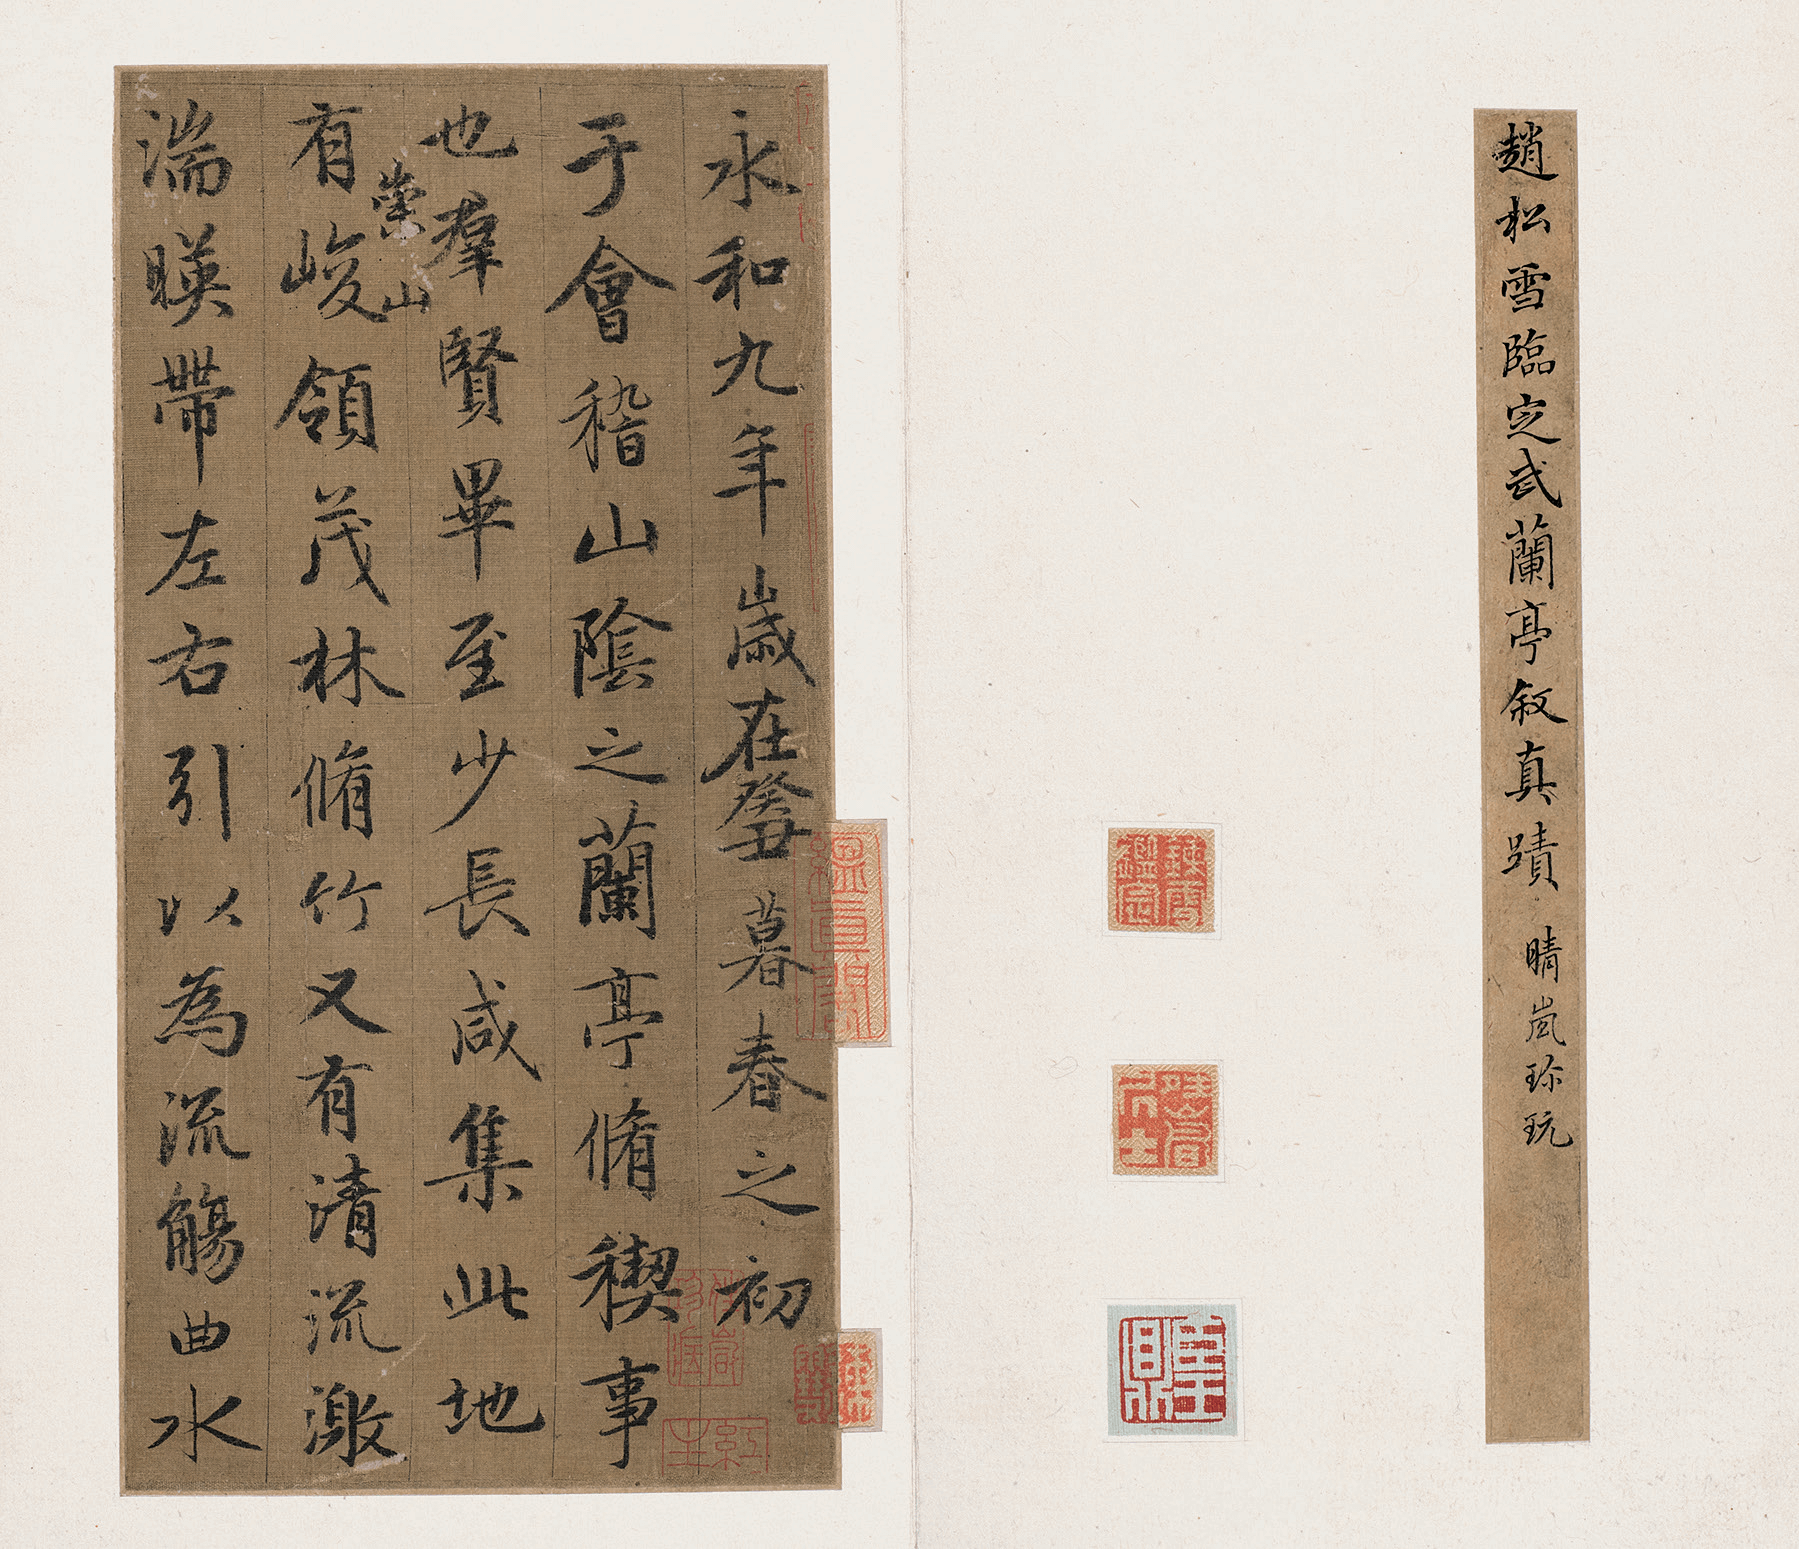 趙松雪臨定武蘭亭叙真蹟
晴嵐珎玩
永和九年歲在癸丑暮春之初
于會稽山陰之蘭亭脩稧事
也羣賢畢至少長咸集此地
崇山
有峻領茂林脩竹又有清流激
湍暎帶左右引以為流觴曲水